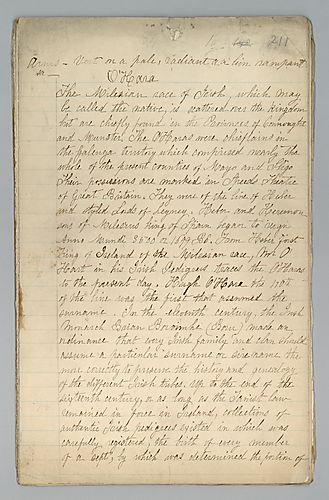 211
Arms – Vert on a pale, radiant a a lion rampant
O'Hara
The Milesian race of Irish, which may
be called the native, is scattered over the Kingdom
but are chiefly found in the Provinces of Connought
and Munster. The O'Haras were chieftains in
the territory which comprised nearly the
whole of the present counties of Mayo and Sligo
Their possessions are marked in Speeds Theatre
of Great Britain. They were of the line of Heber
and styled Lords of Leyney. Heber and Heremon
sons of Milesius King of Spain began to reign
Anno Mundi 3500 or 1699 BC. From Heber first
King of Ireland of the Milesian race,
Hart in his Irish Pedigrees traces the O'Haras
to the present day. Hugh O'Hara the
of the line was the first that assumed the
surname. In the eleventh century, the Irish
Monarch Brian Boroimhe (Boru) made an
ordinance that every Irish family and clan should
assume a particular surname or sire name the
more correctly to preserve the history and genealogy
of the different Irish tribes. Up to the end of the
sixteenth century, or as long as the Tanist Law
remained in force in Ireland, collections of
authentic Irish pedigrees existed in which was
carefully registered, the birth of every member
of a Sept, by which was determined the portion of